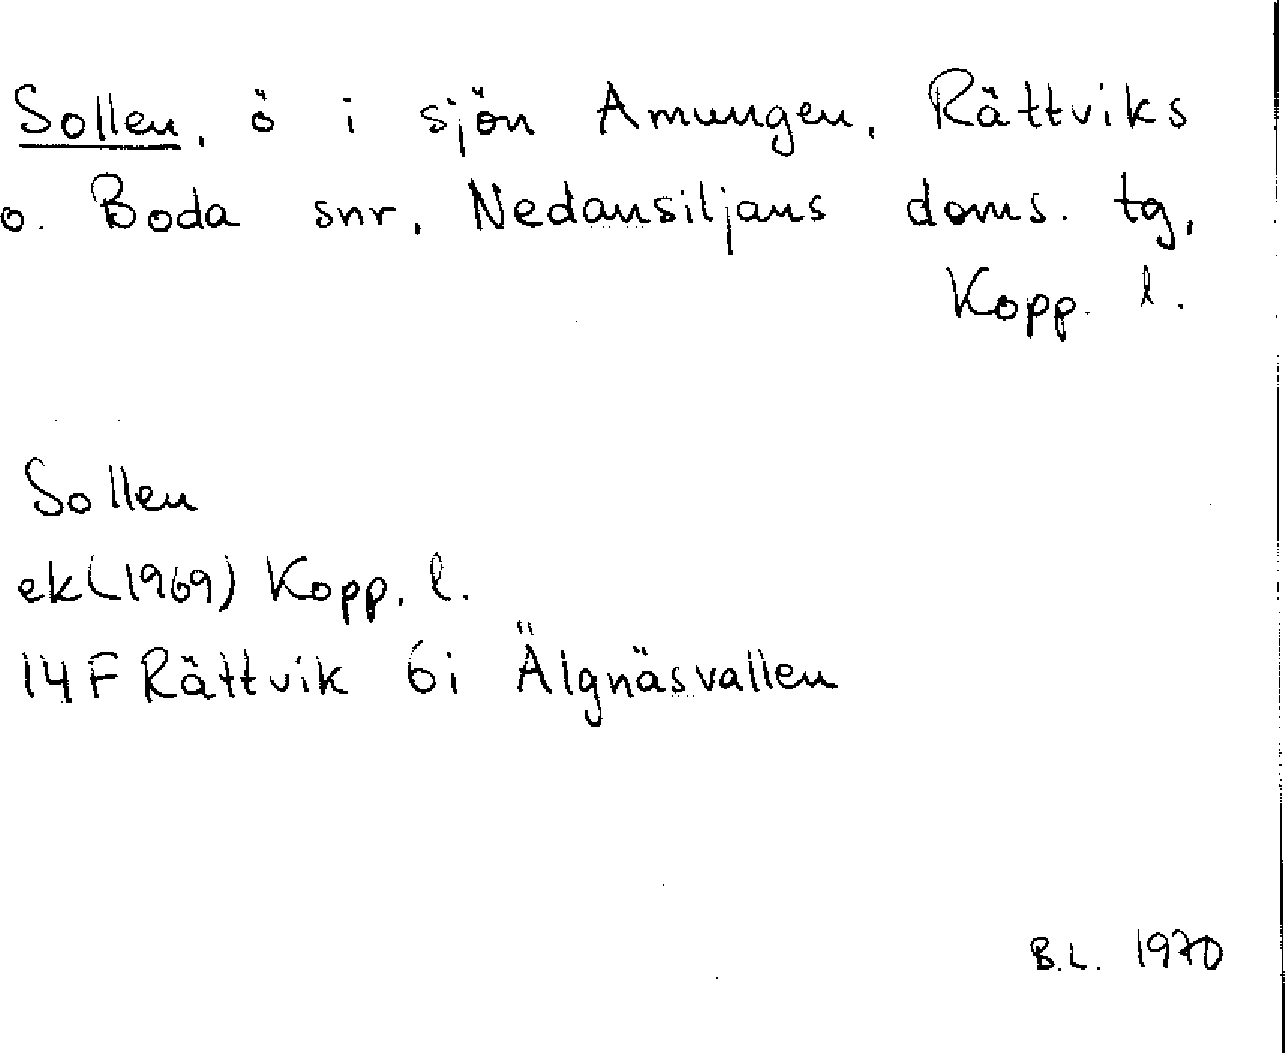 Sollen, ö i sjön Amungen, Rättviks
o. Boda snr, Nedansiljans doms. tg,
Kopp. l.
Sollen
ek (1969) Kopp. l.
14 F Rättvik 6i Älgnäsvallen
B.L. 1970